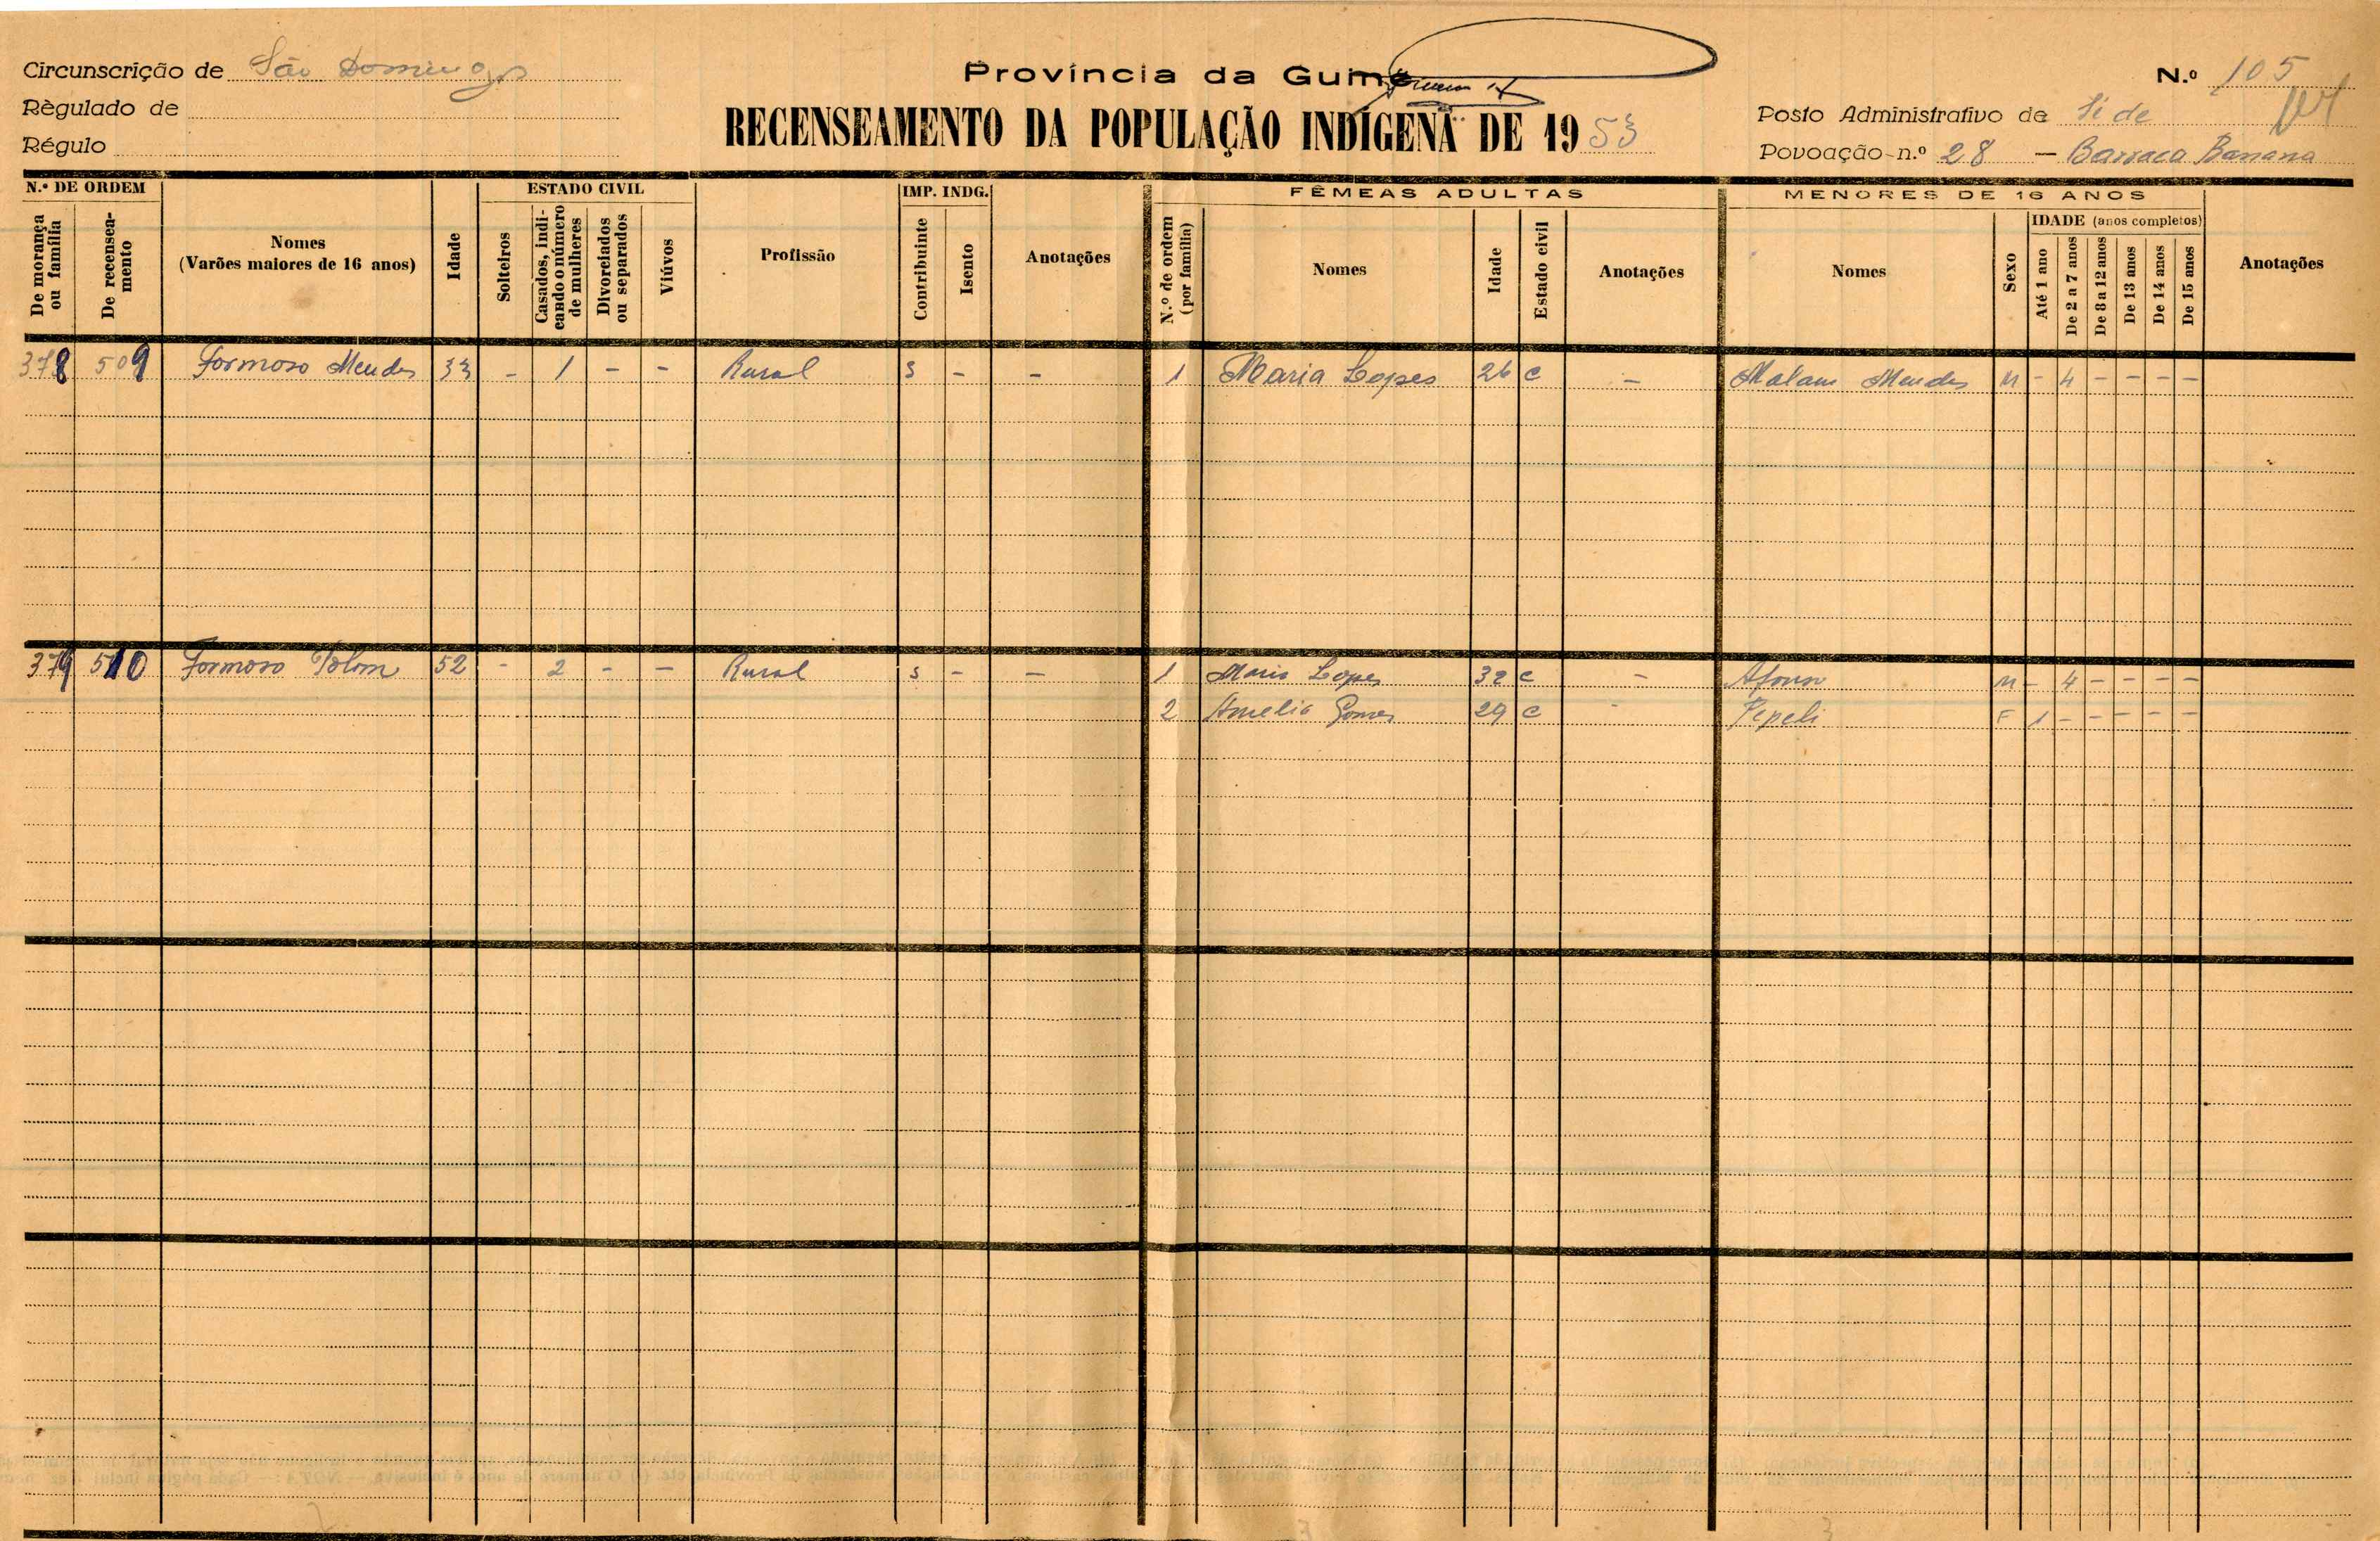 Circunscrição de São Domingos
Règulado de
Régulo
Província da Guiné
RECENSEAMENTO DA POPULAÇÃO INDÍGENA DE 1953
N.º 105
Posto Administrativo da Séde
Povoação n.º 28 — Barraca Banana
N.º DE ORDEM
De morança ou família
De recenseamento
Nomes
(Varões maiores de 16 anos)
Idade
ESTADO CIVIL
Solteiros
Casados, indicando o número de mulheres
Divorciados ou separados
Viúvos
Profissão
IMP. INDG.
Contribuinte
Isento
Anotações
FÊMEAS ADULTAS
N.º de ordem (por família)
Nomes
Idade
Estado civil
Anotações
MENORES DE 16 ANOS
Nomes
Sexo
IDADE (anos completos)
Até 1 ano
De 2 a 7 anos
De 8 a 12 anos
De 13 anos
De 14 anos
De 15 anos
Anotações
378 509 Formoso Mendes 33 - 1 - - Rural S - - 1 Maria Lopes 26 C - Malam Mendes M - 4 - - - -
379 510 Formoso Polom 52 - 2 - - Rural S - - 1 Maria Lopes 32 C - Afonso M - 4 - - - -
2 Amelia Gomes 29 C - Pepeli F 1 - - - - -